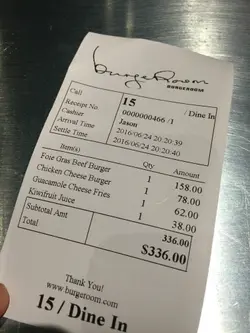 BurgeRoom
BURGEROOM
Call 15 / Dine In
Receipt No. 0000000466 /1
Cashier Jason
Arrival Time 2016/06/24 20:20:39
Settle Time 2016/06/24 20:20:40
Item(s) Qty Amount
Foie Gras Beef Burger 1 158.00
Chicken Cheese Burger 1 78.00
Guacamole Cheese Fries 1 62.00
Kiwifruit Juice 1 38.00
Subtotal Amt 336.00
Total $336.00
Thank You!
www.burgeroom.com
15 / Dine In